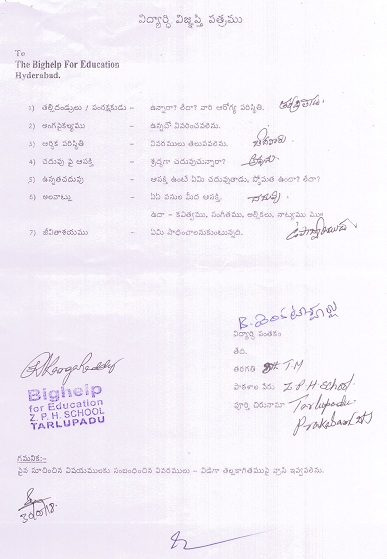 విద్యార్థి విజ్ఞప్తి పత్రము
To
The Bighelp For Education
Hyderabad.
1) తల్లిదండ్రులు / సంరక్షకుడు - ఉన్నారా? లేదా? వారి ఆరోగ్య పరిస్థితి.
2) అంగవైకల్యము - ఉన్నచో వివరించవలెను.
3) ఆర్థిక పరిస్థితి - వివరములు తెలుపవలెను.
4) చదువు పై ఆసక్తి - శ్రద్ధగా చదువుచున్నారా?
5) ఉన్నతచదువు - ఆసక్తి ఉంటే ఏమి చదువుతాడు, స్తోమత ఉందా? లేదా?
6) అలవాట్లు - ఏఏ పనుల మీద ఆసక్తి.
ఉదా - కవిత్వము, సంగీతము, అల్లికలు, నాట్యము మ||
7) జీవితాశయము - ఏమి సాధించాలనుకుంటున్నది.
విద్యార్థి సంతకం
తేది.
తరగతి T.M
పాఠశాల పేరు Z.P.H School.
పూర్తి చిరునామా Tarlupadu
Prakasam
Bighelp
for Education
Z. P. H. SCHOOL
TARLUPADU
గమనిక:-
పైన సూచించిన విషయములకు సంబంధించిన వివరములు - విడిగా తెల్లకాగితముపై వ్రాసి ఇవ్వవలెను.